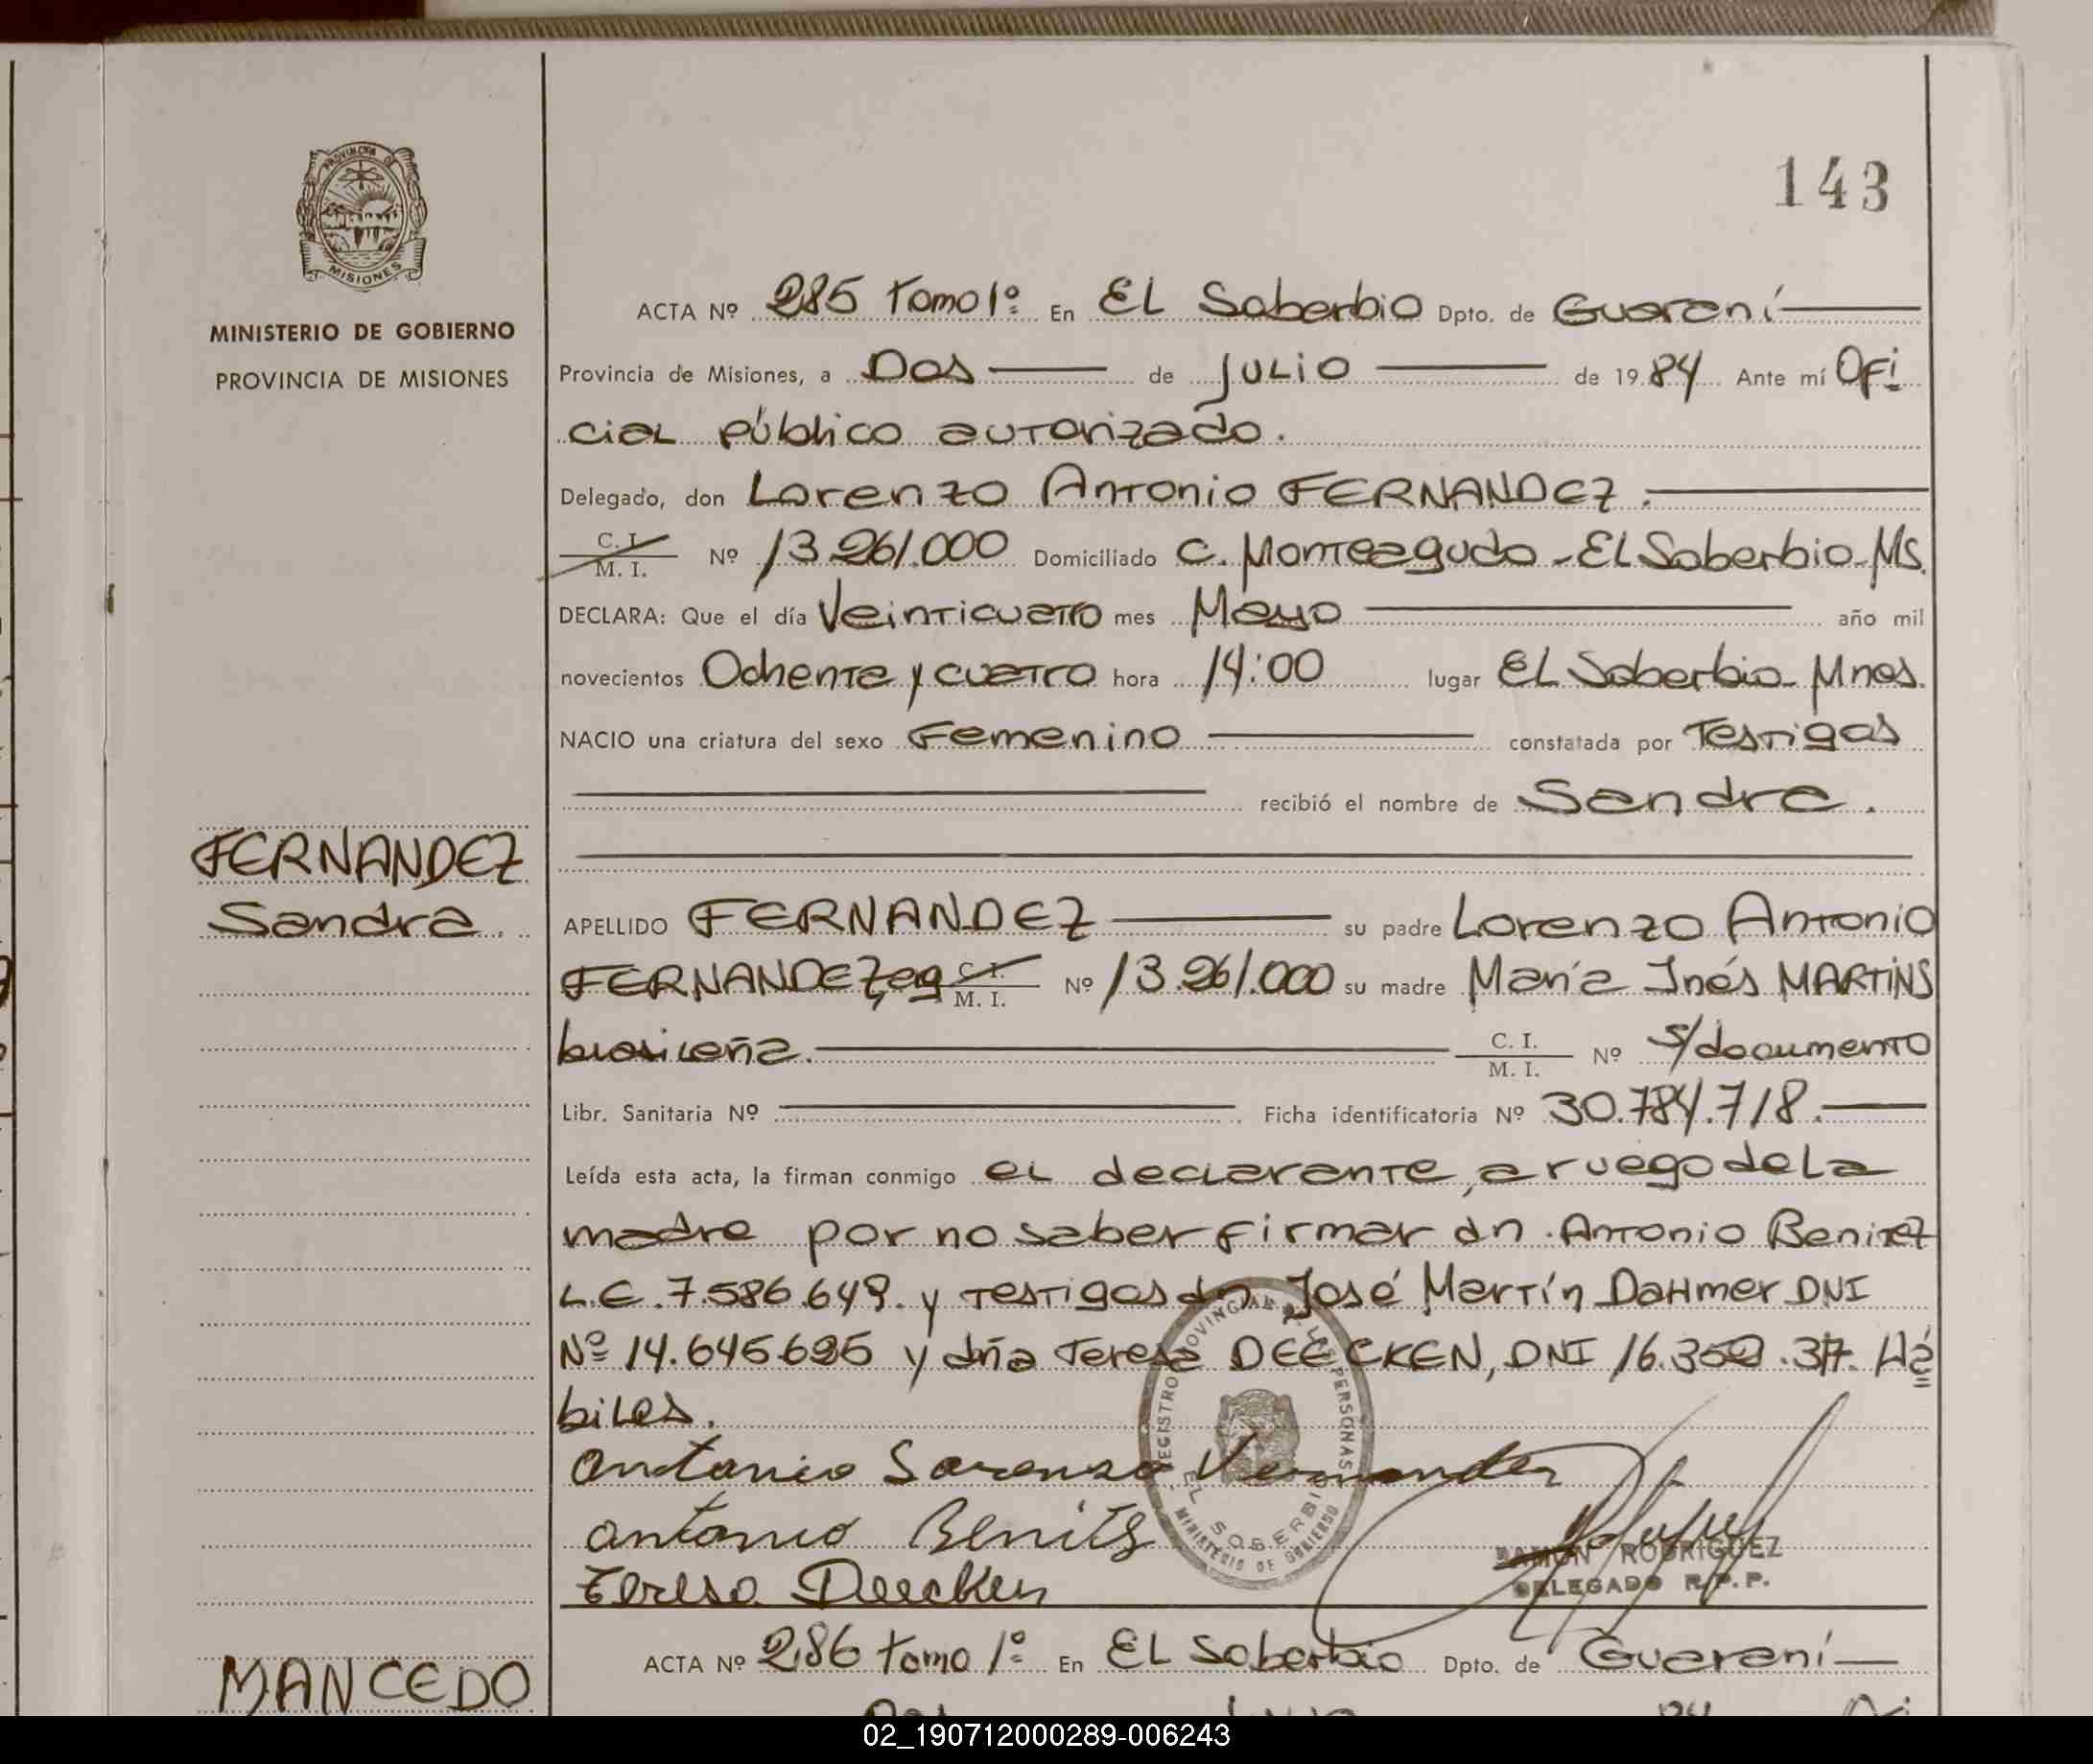 143
PROVINCIA DE
MISIONES
MINISTERIO DE GOBIERNO
PROVINCIA DE MISIONES
ACTA Nº 285 Tomo 1º En EL Soberbio Dpto. de Guaraní
Provincia de Misiones, a Dos de JULIO de 1984 Ante mí Ofi
cial público autorizado.
Delegado, don Lorenzo Antonio FERNANDEZ.
C. I. M. I. Nº 13.261.000 Domiciliado C. Monteagudo - EL Soberbio - Ms.
DECLARA: Que el día Veinticuatro mes Mayo año mil
novecientos Ochenta y cuatro hora 14:00 lugar EL Soberbio - Mnes.
NACIO una criatura del sexo Femenino constatada por Testigos
recibió el nombre de Sandra.
FERNANDEZ
Sandra.
APELLIDO FERNANDEZ su padre Lorenzo Antonio
FERNANDEZ, arg C. I. M. I. Nº 13.261.000 su madre María Inés MARTINS
brasileña. C. I. M. I. Nº s/documento
Libr. Sanitaria Nº Ficha identificatoria Nº 30.784.718.
Leída esta acta, la firman conmigo el declarante, a ruego de la
madre por no saber firmar dn. Antonio Benitez
L.E. 7.586.649. y testigos dn José Martín DaHmer DNI
Nº 14.645.695 y dña Teresa DEECKEN, DNI Há
biles.
REGISTRO PROVINCIAL DE LAS PERSONAS
EL SOBERBIO
MINISTERIO DE GOBIERNO
Antonio Lorenzo Fernandez
Antonio Benits
RAMON RODRIGUEZ
DELEGADO R.P.P.
Teresa Deecken
ACTA Nº 286 Tomo 1º En EL Soberbio Dpto. de Guaraní
MANCEDO
02_190712000289-006243